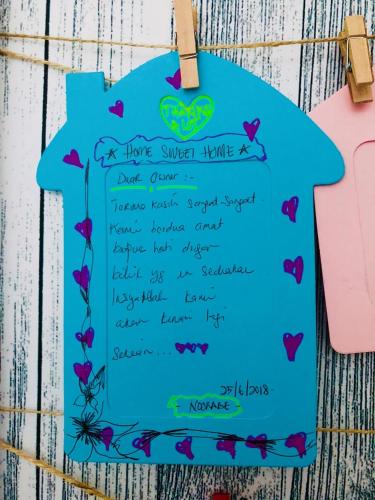 Thank You
★ HOME SWEET HOME ★
Dear Owner :-
Terima kasih sangat-sangat.
Kami berdua amat
hati dgn
bilik yg u sediakan
Insyaallah kami
akan kemari lagi
Sekian...
25/6/2018
- NOORAGE -